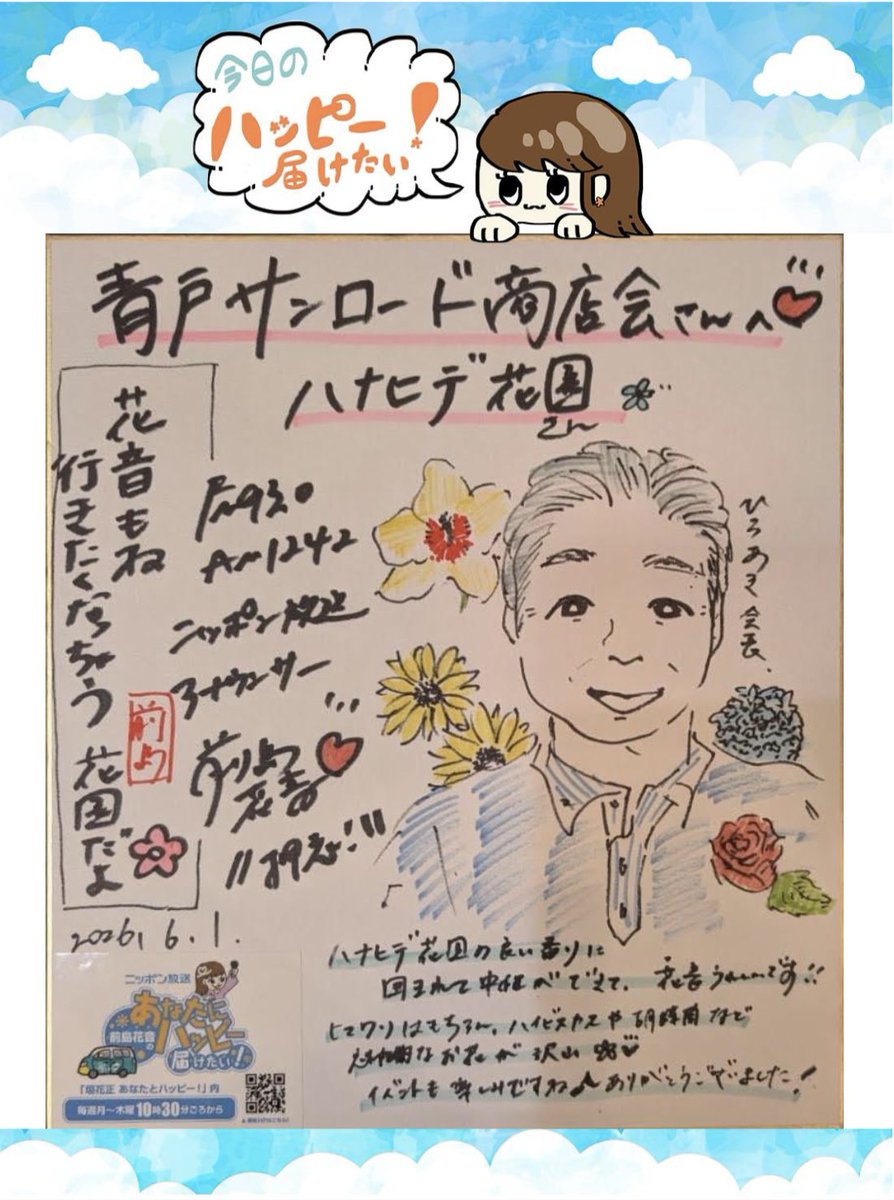 今日の
ハッピー!
届けたい
青戸サンロード商店会さんへ
ハナヒデ花園
さん
花音もね
行きたくなっちゃう 花園だよ
FM93.0
AM1242
ニッポン放送
アナウンサー
前島
花音
前島
ひろあき会長
2026, 6. 1.
ハナヒデ花園の良い香りに
囲まれて中継ができて、花音うれしいです!!
ヒマワリはもちろん、ハイビスカスや胡蝶蘭など
なお花が沢山
イベントも楽しみですね♪ありがとうございました!
ニッポン放送
前島花音の
あなたに
ハッピー
届けたい!
「垣花正 あなたとハッピー!」内
毎週月~木曜10時30分ごろから